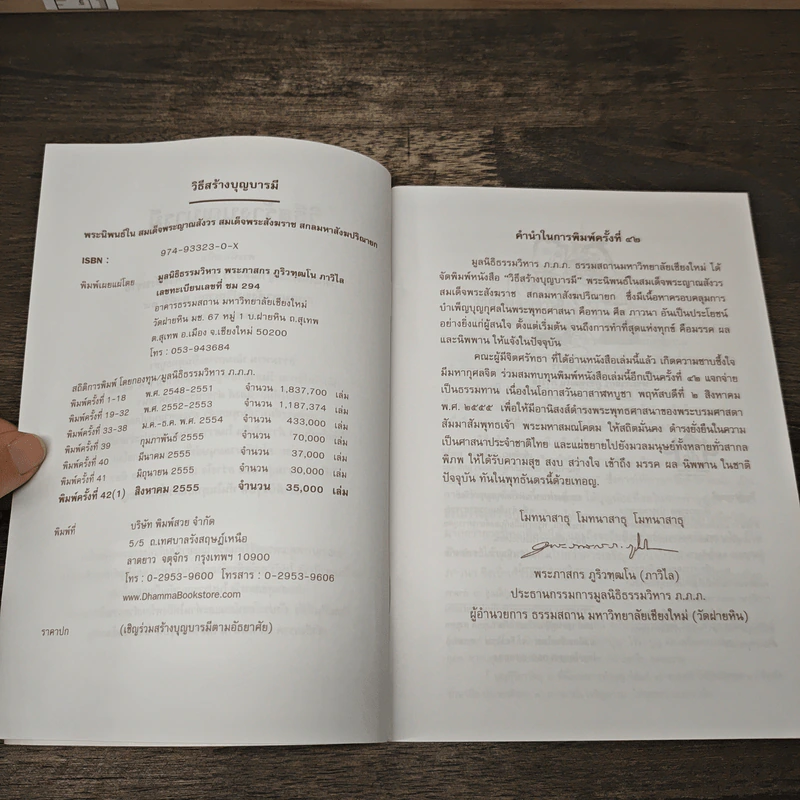 วิธีสร้างบุญบารมี
พระนิพนธ์ใน สมเด็จพระญาณสังวร สมเด็จพระสังฆราช สกลมหาสังฆปริณายก
ISBN : 974-93323-0-X
พิมพ์เผยแผ่โดย มูลนิธิธรรมวิหาร พระภาสกร ภูริวฑฺฒโน ภาวิไล
เลขทะเบียนเลขที่ ชม 294
อาคารธรรมสถาน มหาวิทยาลัยเชียงใหม่
วัดฝายหิน มช. 67 หมู่ 1 บ.ฝายหิน ถ.สุเทพ
ต.สุเทพ อ.เมือง จ.เชียงใหม่ 50200
โทร : 053-943684
สถิติการพิมพ์ โดยกองทุน/มูลนิธิธรรมวิหาร ภ.ภ.ภ.
พิมพ์ครั้งที่ 1-18 พ.ศ. 2548-2551 จำนวน 1,837,700 เล่ม
พิมพ์ครั้งที่ 19-32 พ.ศ. 2552-2553 จำนวน 1,187,374 เล่ม
พิมพ์ครั้งที่ 33-38 ม.ค.-ธ.ค. พ.ศ. 2554 จำนวน 433,000 เล่ม
พิมพ์ครั้งที่ 39 กุมภาพันธ์ 2555 จำนวน 70,000 เล่ม
พิมพ์ครั้งที่ 40 มีนาคม 2555 จำนวน 37,000 เล่ม
พิมพ์ครั้งที่ 41 มิถุนายน 2555 จำนวน 30,000 เล่ม
พิมพ์ครั้งที่ 42(1) สิงหาคม 2555 จำนวน 35,000 เล่ม
พิมพ์ที่ บริษัท พิมพ์สวย จำกัด
5/5 ถ.เทศบาลรังสฤษฎ์เหนือ
ลาดยาว จตุจักร กรุงเทพฯ 10900
โทร : 0-2953-9600 โทรสาร : 0-2953-9606
www.DhammaBookstore.com
ราคาปก (เชิญร่วมสร้างบุญบารมีตามอัธยาศัย)
คำนำในการพิมพ์ครั้งที่ ๔๒
มูลนิธิธรรมวิหาร ภ.ภ.ภ. ธรรมสถานมหาวิทยาลัยเชียงใหม่ ได้
จัดพิมพ์หนังสือ "วิธีสร้างบุญบารมี" พระนิพนธ์ในสมเด็จพระญาณสังวร
สมเด็จพระสังฆราช สกลมหาสังฆปริณายก ซึ่งมีเนื้อหาครอบคลุมการ
บำเพ็ญบุญกุศลในพระพุทธศาสนา คือทาน ศีล ภาวนา อันเป็นประโยชน์
อย่างยิ่งแก่ผู้สนใจ ตั้งแต่เริ่มต้น จนถึงการทำที่สุดแห่งทุกข์ คือมรรค ผล
และนิพพาน ให้แจ้งในปัจจุบัน
คณะผู้มีจิตศรัทธา ที่ได้อ่านหนังสือเล่มนี้แล้ว เกิดความซาบซึ้งใจ
มีมหากุศลจิต ร่วมสมทบทุนพิมพ์หนังสือเล่มนี้อีกเป็นครั้งที่ ๔๒ แจกจ่าย
เป็นธรรมทาน เนื่องในโอกาสวันอาสาฬหบูชา พฤหัสบดีที่ ๒ สิงหาคม
พ.ศ. ๒๕๕๕ เพื่อให้มีอานิสงส์ดำรงพระพุทธศาสนาของพระบรมศาสดา
สัมมาสัมพุทธเจ้า พระมหาสมณโคดม ให้สถิตมั่นคง ดำรงยั่งยืนในความ
เป็นศาสนาประจำชาติไทย และแผ่ขยายไปยังมวลมนุษย์ทั้งหลายทั่วสากล
พิภพ ให้ได้รับความสุข สงบ สว่างใจ เข้าถึง มรรค ผล นิพพาน ในชาติ
ปัจจุบัน ทันในพุทธันตรนี้ด้วยเทอญ.
โมทนาสาธุ โมทนาสาธุ โมทนาสาธุ
พระภาสกร ภูริวฑฺฒโน (ภาวิไล)
ประธานกรรมการมูลนิธิธรรมวิหาร ภ.ภ.ภ.
ผู้อำนวยการ ธรรมสถาน มหาวิทยาลัยเชียงใหม่ (วัดฝายหิน)